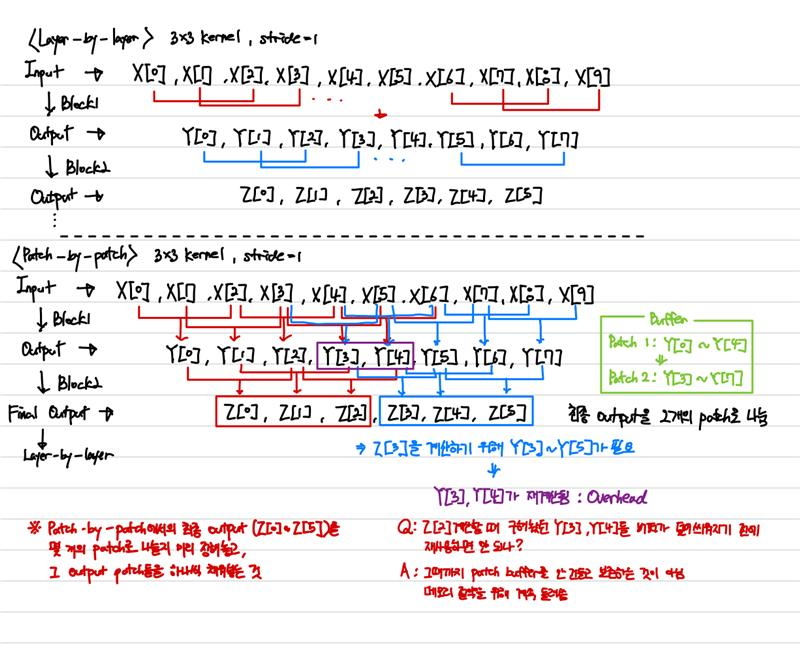 <Layer-by-layer> 3x3 kernel, stride=1
Input → X[0], X[1], X[2], X[3], X[4], X[5], X[6], X[7], X[8], X[9]
↓ Block1 ...
Output → Y[0], Y[1], Y[2], Y[3], Y[4], Y[5], Y[6], Y[7]
↓ Block2 ...
Output → Z[0], Z[1], Z[2], Z[3], Z[4], Z[5]
⋮
<Patch-by-patch> 3x3 kernel, stride=1
Input → X[0], X[1], X[2], X[3], X[4], X[5], X[6], X[7], X[8], X[9]
↓ Block1
Output → Y[0], Y[1], Y[2], Y[3], Y[4], Y[5], Y[6], Y[7]
↓ Block2
Final Output → Z[0], Z[1], Z[2], Z[3], Z[4], Z[5]
↓
Layer-by-layer
Buffer
Patch 1: Y[0] ~ Y[4]
↓
Patch 2: Y[3] ~ Y[7]
최종 output을 2개의 patch로 나눔
⇒ Z[3]을 계산하기 위해 Y[3]~Y[5]가 필요
↓
Y[3], Y[4]가 재계산됨 : Overhead
※ Patch-by-patch에서의 최종 output (Z[0]~Z[5])을
몇 개의 patch로 나눌지 미리 정해놓고,
그 output patch들을 하나씩 채워가는 것
Q: Z[2] 계산할 때 구해놨던 Y[3], Y[4]를 버퍼가 덮어씌워지기 전에
재사용하면 안 되나?
A: 그때까지 patch buffer를 안 건들고 보존하는 것이 아님
메모리 절약을 위해 계속